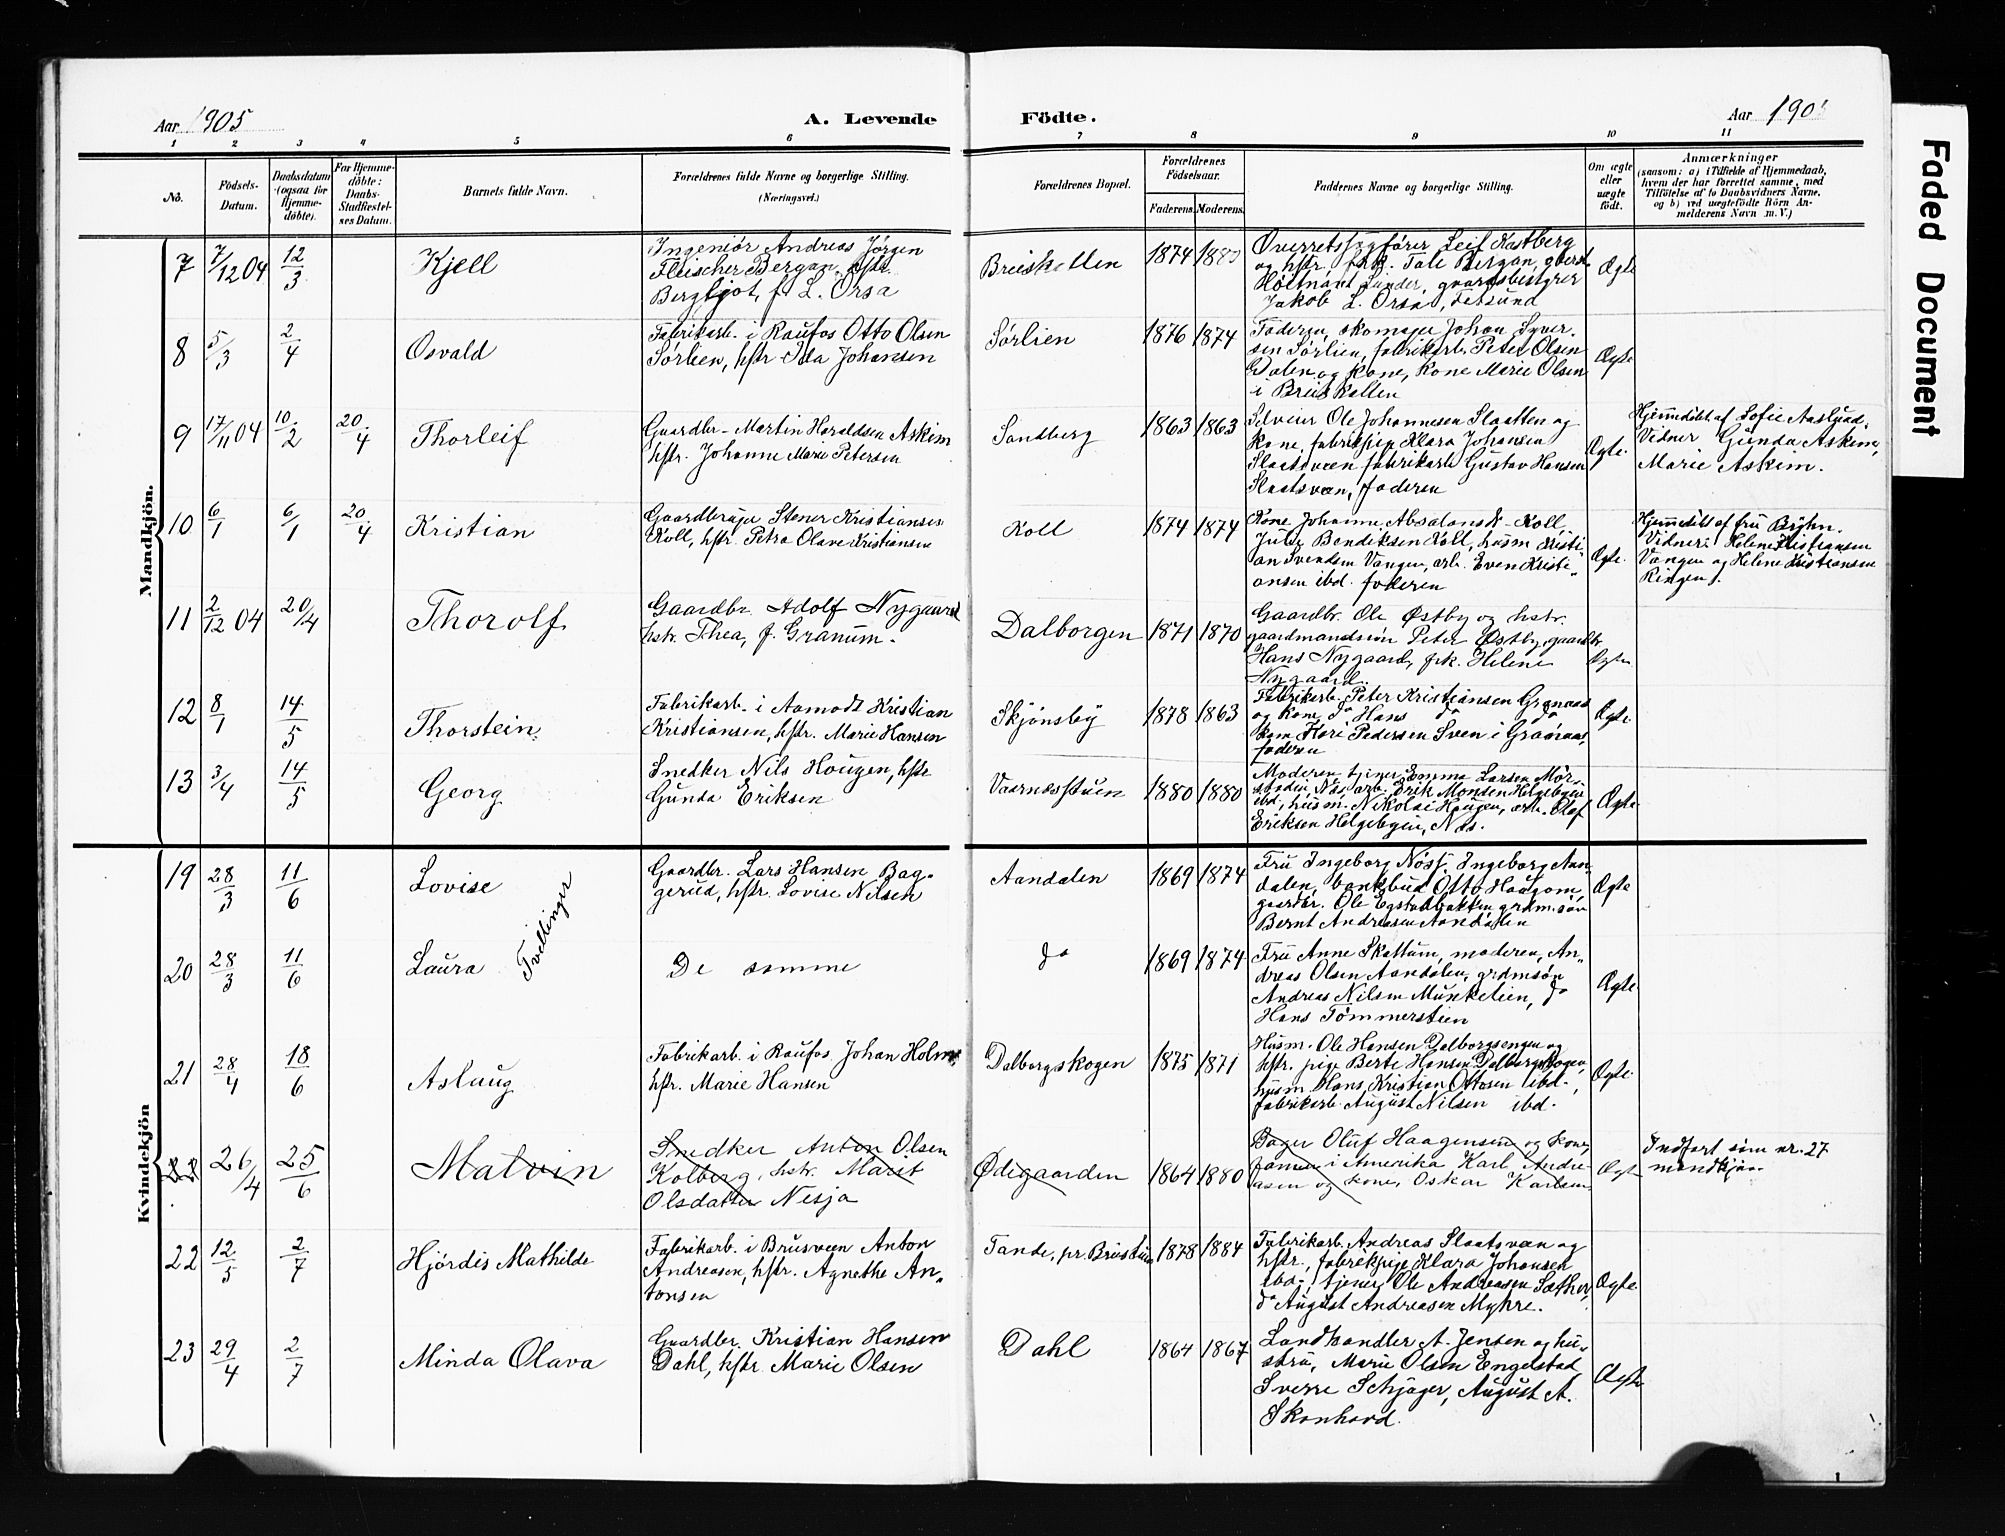 Aar 1905
A. Levende
Födte.
Aar 190
1 2 3 4 5 6 7 8 9 10 11
No.
Födsels-
Datum.
Daabsdatum
(ogsaa for
Hjemme-
döbte).
For Hjemme-
döbte:
Daabs-
Stadfæstel-
ses Datum.
Barnets fulde Navn.
Forældrenes fulde Navne og borgerlige Stilling.
(Næringsvei.)
Forældrenes Bopæl.
Forældrenes
Födselsaar.
Faderens. Moderens.
Faddernes Navne og borgerlige Stilling.
Om ægte
eller
uægte
födt.
Anmærkninger
(saasom: a) i Tilfælde af Hjemmedaab,
hvem der har forrettet samme, med
Tilföielse af to Daabsvidners Navne,
og b) ved uægtefödte Börn An-
melderens Navn m. V.)
Mandkjön.
7 7/12 04 12/3 Kjell
Ingeniör Andreas Jörgen
Fleischer Bergan, hstr.
Bergljot, f. L. Orsa
Breiskallen 1874
Overretssagfører Leif Kastberg
og hstr. frk. Tale Bergan,
Jakob L. Orsa, Fetsund
Ægte
8 5/3 2/4 Osvald
Fabrikarb. i Raufos Otto Olsen
Sørlien, hstr. Ida Johansen
Sørlien 1876 1874
Faderen, skomager Johan Syver-
sen Sørlien, fabrikarb. Peter Olsen
Dalen og kone, kone Marie Olsen
i Breiskallen
Ægte
9 17/11 04 10/2 20/4 Thorleif
Gaardbr. Martin Haraldsen Askim
hstr. Johanne Marie Petersen
Sandberg 1863 1863
Selveier Ole Johannesen Slaatten og
kone, fabrikpige Klara Johansen
Slaatsveen fabrikarb Gustav Hansen
Slaatsveen, faderen
Ægte.
Hjemmedöbt af Sofie Aaslund.
Vidner Gunda Askim,
Marie Askim.
10 6/1 6/1 20/4 Kristian
Gaardbruger Stener Kristiansen
Koll, hstr. Petra Olave Kristiansen
Koll 1874 1874
Kone Johanne Absalonsd. Koll,
Julie Bendiksen Koll, husm Kristi-
an Svendsen Vangen, arb. Even Kristi-
ansen ibd. faderen
Ægte.
Hjemmedöbt af fru Bÿhn.
Vidner: Helene Kristiansen
Vangen og Helene Kristiansen
Ringen.
11 2/12 04 20/4 Thorolf
Gaardbr. Adolf Nygaard
hstr. Thea, f. Granum.
Dalborgen 1871 1870
Gaardbr. Ole Østby og hstr.
gaardmandssön Peter Østby, gaardbr
Hans Nygaard, frk. Helene
Nygaard.
Ægte.
12 8/1 14/5 Thorstein.
Fabrikarb. i Aamodt Kristian
Kristiansen, hstr. Marie Hansen
Skjønsby 1878 1863
Fabrikarb. Peter Kristiansen Granaas
og kone, do Hans do do
Pedersen Sven i Granaas,
faderen
Ægte
13 3/4 14/5 Georg
Snedker Nils Hougen, hstr
Gunda Eriksen
Vaarnæsstuen 1880 1880
Moderen, tjener Emma Larsen Mör-
stadie, Næs, arb. Erik Monsen Helgebyeie
ibd., husm. Nikolai Hougen, arb. Olaf
Eriksen Helgebyeie, Næs.
Ægte
Kvindekjön
19 28/3 11/6 Lovise
Tvillinger
Gaardbr. Lars Hansen Bag-
gerud, hstr. Lovise Nilsen
Aandalen 1869 1874
Fru Ingeborg Nöss, Ingeborg Aan-
dalen, bankbud Otto Haugom,
gaardbr. Ole grdm.sön
Bernt Andreasen Aandalen
Ægte
20 28/3 11/6 Laura
De samme
do 1869 1874
Fru Anne Skattum, moderen, An-
dreas Olsen Aandalen, grdmsøn
Andreas Nilsen Munkelien, do
Hans Tömmerstien
Ægte
21 28/4 18/6 Aslaug
Fabrikarb. i Raufos Johan Holm,
hstr. Marie Hansen
Dalborgskogen 1875 1871
Husm. Ole Hansen Dalborgsengen og
hstr. pige Berte Hansen Dalborgskogen,
husm Hans Kristian Ottosen ibd.,
fabrikarb. August Nilsen ibd.
Ægte.
22 26/4 25/6 Malvin
Snedker Anton Olsen
Kolberg, hstr. Marit
Olsdatter Nesja
Ødegaarden 1864 1880
Bager Oluf Haagensen og kone,
i Amerika, Karl Andre-
asen og kone, Oskar Karlsen
Ægt
Indfört som nr. 27
mandkjön.
22 12/5 2/7 Hjördis Mathilde
Fabrikarb. i Brusveen Anton
Andreasen, hstr. Agnethe An-
tonsen
Tande, pr. 1878 1884
Fabrikarb. Andreas Slaatsveen og
hstr., fabrikpige Klara Johansen
ibd., tjener Ole Andreasen Sæther,
do August Andreasen Myhre.
Ægte.
23 29/4 2/7 Minda Olava
Gaardbr. Kristian Hansen
Dahl, hstr. Marie Olsen
Dahl 1864 1867
Landhandler A. Jensen og hu-
stru, Marie Olsen Engelstad
Sverre Schjager, August A.
Skonhord.
Ægte
Faded Document